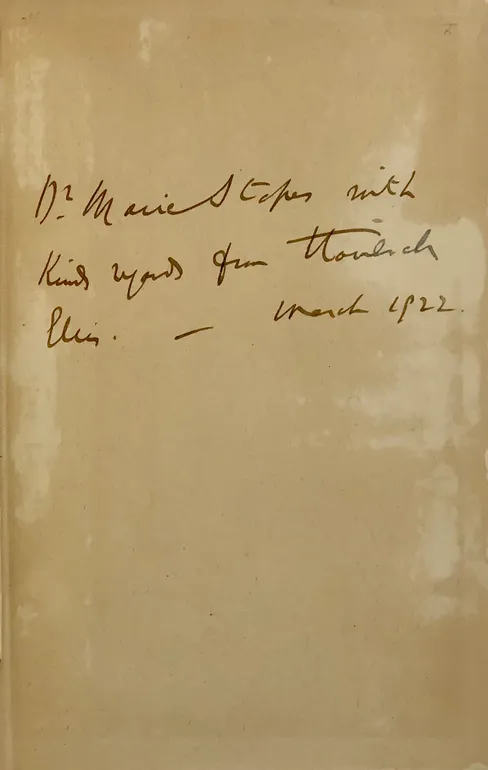 Dr Marie Stopes with
kind regards from Havelock
Ellis. — March 1922.